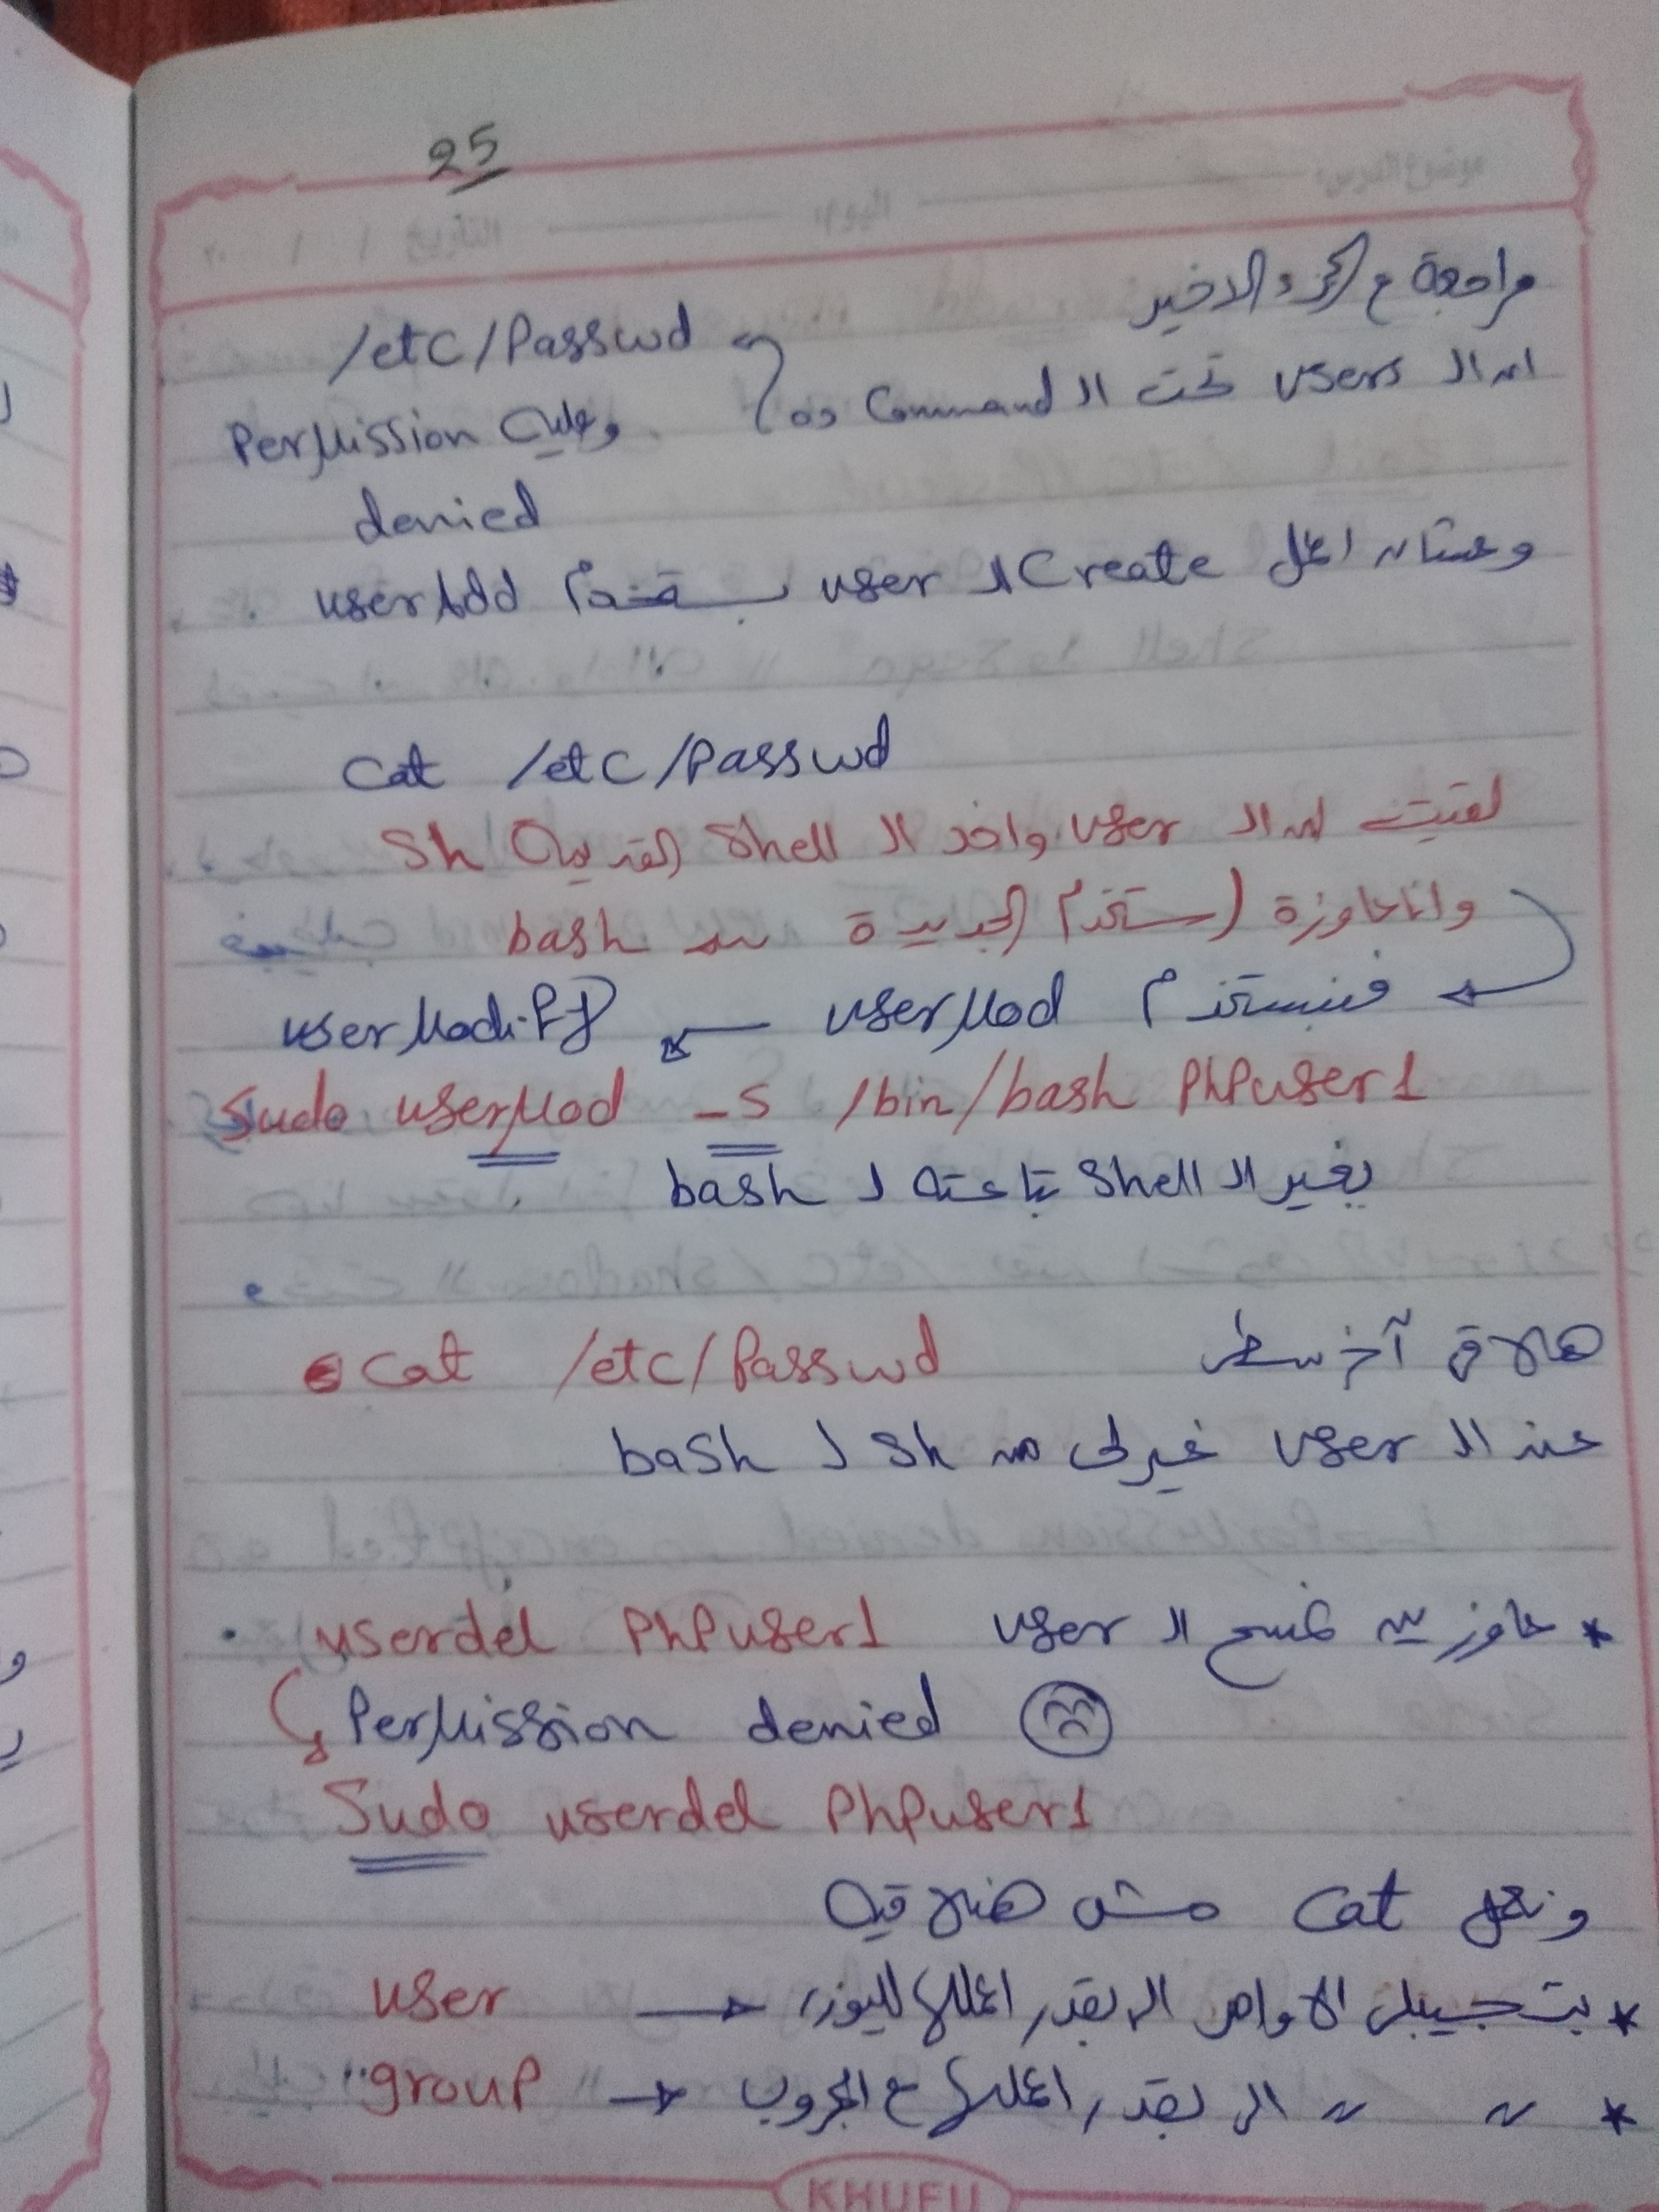 25
مراجعة ع الجزء الاخير
ان ال users تحت ال Command ده
/etc/Passwd
وعليه Permission
denied
وعشان اعمل Create ل user بستخدم userAdd
Cat /etc/Passwd
لقيت ان ال user واخد ال Shell القديمة Sh
وانا عاوزة استخدم الجديدة bash
فنستخدم userMod ← userModify
Sudo userMod -S /bin/bash PhPuser1
يغير ال Shell بتاعته ل bash
هلاقي آخر سطر cat /etc/Passwd
عند ال user غيرلى من Sh ل bash
* عاوزين نمسح ال user userdel PhPuser1
Permission denied
Sudo userdel PhPuser1
ونعمل Cat مش هنلاقيه
* بتجيبلى الاوامر الى بقدر اعملها لليوزر → user
* " " الى بقدر اعملها ع الجروب → group
KHUFU